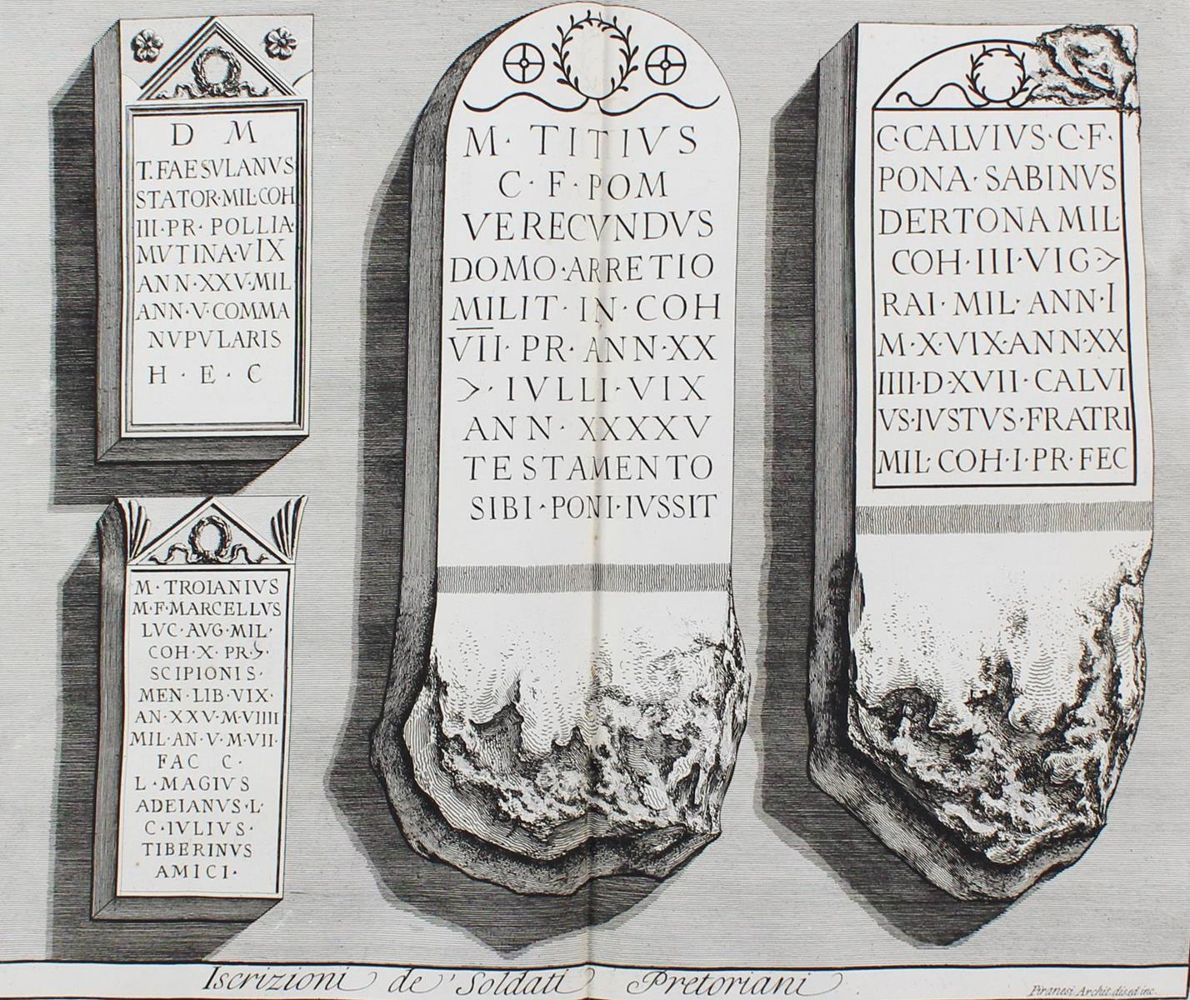 D M
T. FAESVLANVS
STATOR·MIL·COH
III·PR·POLLIA·
MVTINA·VIX
ANN·XXV·MIL
ANN·V·COMMA
NVPVLARIS
H · E · C
M·TROIANIVS
M·F·MARCELLVS
LVC·AVG·MIL·
COH·X·PR·>
SCIPIONIS·
MEN·LIB·VIX·
AN·XXV·M·VIIII
MIL·AN·V·M·VII·
FAC C·
L·MAGIVS
ADEIANVS·L·
C·IVLIVS·
TIBERINVS
AMICI·
M· TITIVS
C · F · POM
VERECVNDVS
DOMO·ARRETIO
MILIT·IN·COH
VII·PR·ANN·XX
>· IVLLI·VIX
ANN·XXXXV
TESTAMENTO
SIBI·PONI·IVSSIT
C·CALVIVS·C·F·
PONA·SABINVS
DERTONA MIL·
COH·III·VIG·>
RAI·MIL·ANN·I
M·X·VIX·ANN·XX
IIII·D·XVII·CALVI
VS·IVSTVS·FRATRI
MIL·COH·I·PR·FEC
Iscrizioni de' Soldati Pretoriani
Piranesi Archit. dis. ed inc.